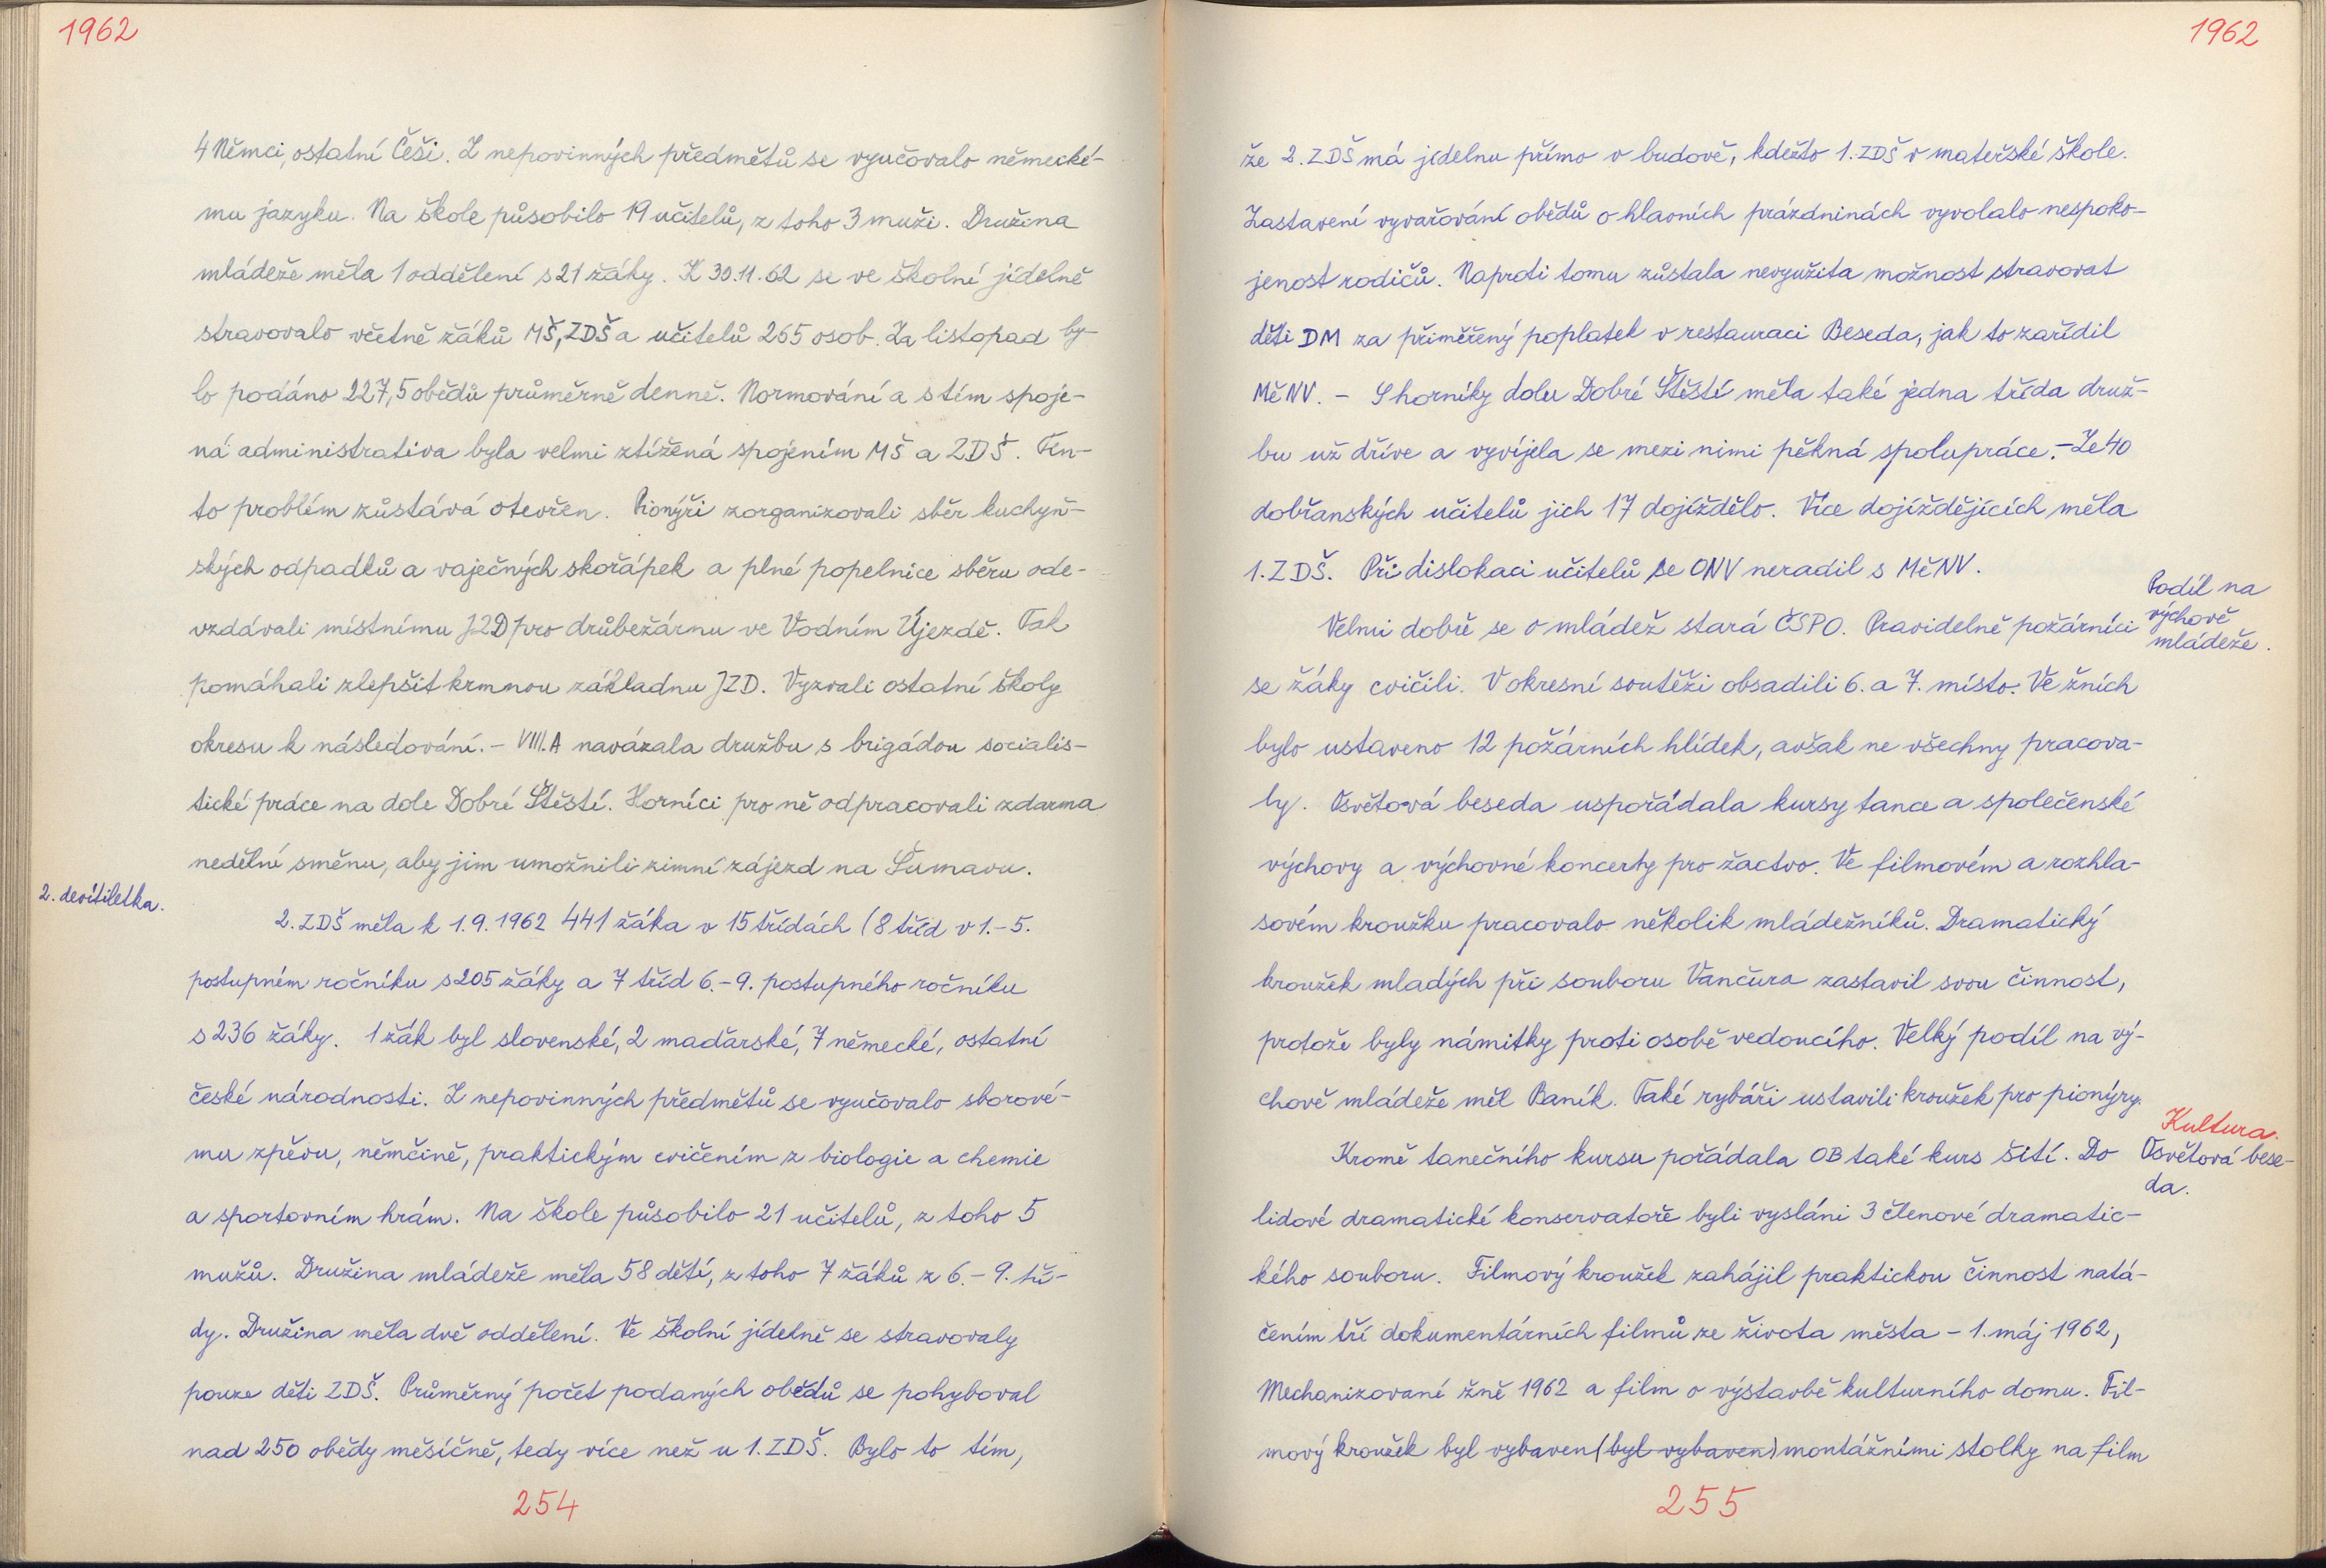 1962
4 Němci, ostatní Češi. Z nepovinných předmětů se vyučovalo německé-
mu jazyku. Na škole působilo 19 učitelů, z toho 3 muži. Družina
mládeže měla 1 oddělení s 21 žáky. K 30.11.62 se ve školní jídelně
stravovalo včetně žáků MŠ, ZDŠ a učitelů 265 osob. Za listopad by-
lo podáno 227,5 obědů průměrně denně. Normování a s tím spoje-
ná administrativa byla velmi ztížená spojením MŠ a ZDŠ. Ten-
to problém zůstává otevřen. Pionýři zorganizovali sběr kuchyň-
ských odpadků a vaječných skořápek a plné popelnice sběru ode-
vzdávali místnímu JZD pro drůbežárnu ve Vodním Újezdě. Tak
pomáhali zlepšit krmnou základnu JZD. Vyzvali ostatní školy
okresu k následování. - VIII.A navázala družbu s brigádou socialis-
tické práce na dole Dobré Štěstí. Horníci pro ně odpracovali zdarma
nedělní směnu, aby jim umožnili zimní zájezd na Šumavu.
2. devítiletka.
2. ZDŠ měla k 1.9.1962 441 žáka v 15 třídách (8 tříd v 1.-5.
postupném ročníku s 205 žáky a 7 tříd 6.-9. postupného ročníku
s 236 žáky. 1 žák byl slovenské, 2 maďarské, 7 německé, ostatní
české národnosti. Z nepovinných předmětů se vyučovalo sborové-
mu zpěvu, němčině, praktickým cvičením z biologie a chemie
a sportovním hrám. Na škole působilo 21 učitelů, z toho 5
mužů. Družina mládeže měla 58 dětí, z toho 7 žáků z 6.-9. tří-
dy. Družina měla dvě oddělení. Ve školní jídelně se stravovaly
pouze děti ZDŠ. Průměrný počet podaných obědů se pohyboval
nad 250 obědy měsíčně, tedy více než u 1. ZDŠ. Bylo to tím,
254
1962
že 2. ZDŠ má jídelnu přímo v budově, kdežto 1. ZDŠ v mateřské škole.
Zastavení vyvařování obědů o hlavních prázdninách vyvolalo nespoko-
jenost rodičů. Naproti tomu zůstala nevyužita možnost stravovat
děti DM za přiměřený poplatek v restauraci Beseda, jak to zařídil
MěNV. - S horníky dolu Dobré Štěstí měla také jedna třída druž-
bu už dříve a vyvíjela se mezi nimi pěkná spolupráce. - Ze 40
dobřanských učitelů jich 17 dojíždělo. Více dojíždějících měla
1. ZDŠ. Při dislokaci učitelů se ONV neradil s MěNV.
Podíl na
výchově
mládeže.
Velmi dobře se o mládež stará ČSPO. Pravidelně požárníci
se žáky cvičili. V okresní soutěži obsadili 6. a 7. místo. Ve žních
bylo ustaveno 12 požárních hlídek, avšak ne všechny pracova-
ly. Osvětová beseda uspořádala kursy tance a společenské
výchovy a výchovné koncerty pro žactvo. Ve filmovém a rozhla-
sovém kroužku pracovalo několik mládežníků. Dramatický
kroužek mladých při souboru Vančura zastavil svou činnost,
protože byly námitky proti osobě vedoucího. Velký podíl na vý-
chově mládeže měl Baník. Také rybáři ustavili kroužek pro pionýry.
Kultura.
Osvětová bese-
da.
Kromě tanečního kursu pořádala OB také kurs šití. Do
lidové dramatické konservatoře byli vysláni 3 členové dramatic-
kého souboru. Filmový kroužek zahájil praktickou činnost natá-
čením tří dokumentárních filmů ze života města - 1. máj 1962,
Mechanizované žně 1962 a film o výstavbě kulturního domu. Fil-
mový kroužek byl vybaven (byl vybaven) montážními stolky na film
255